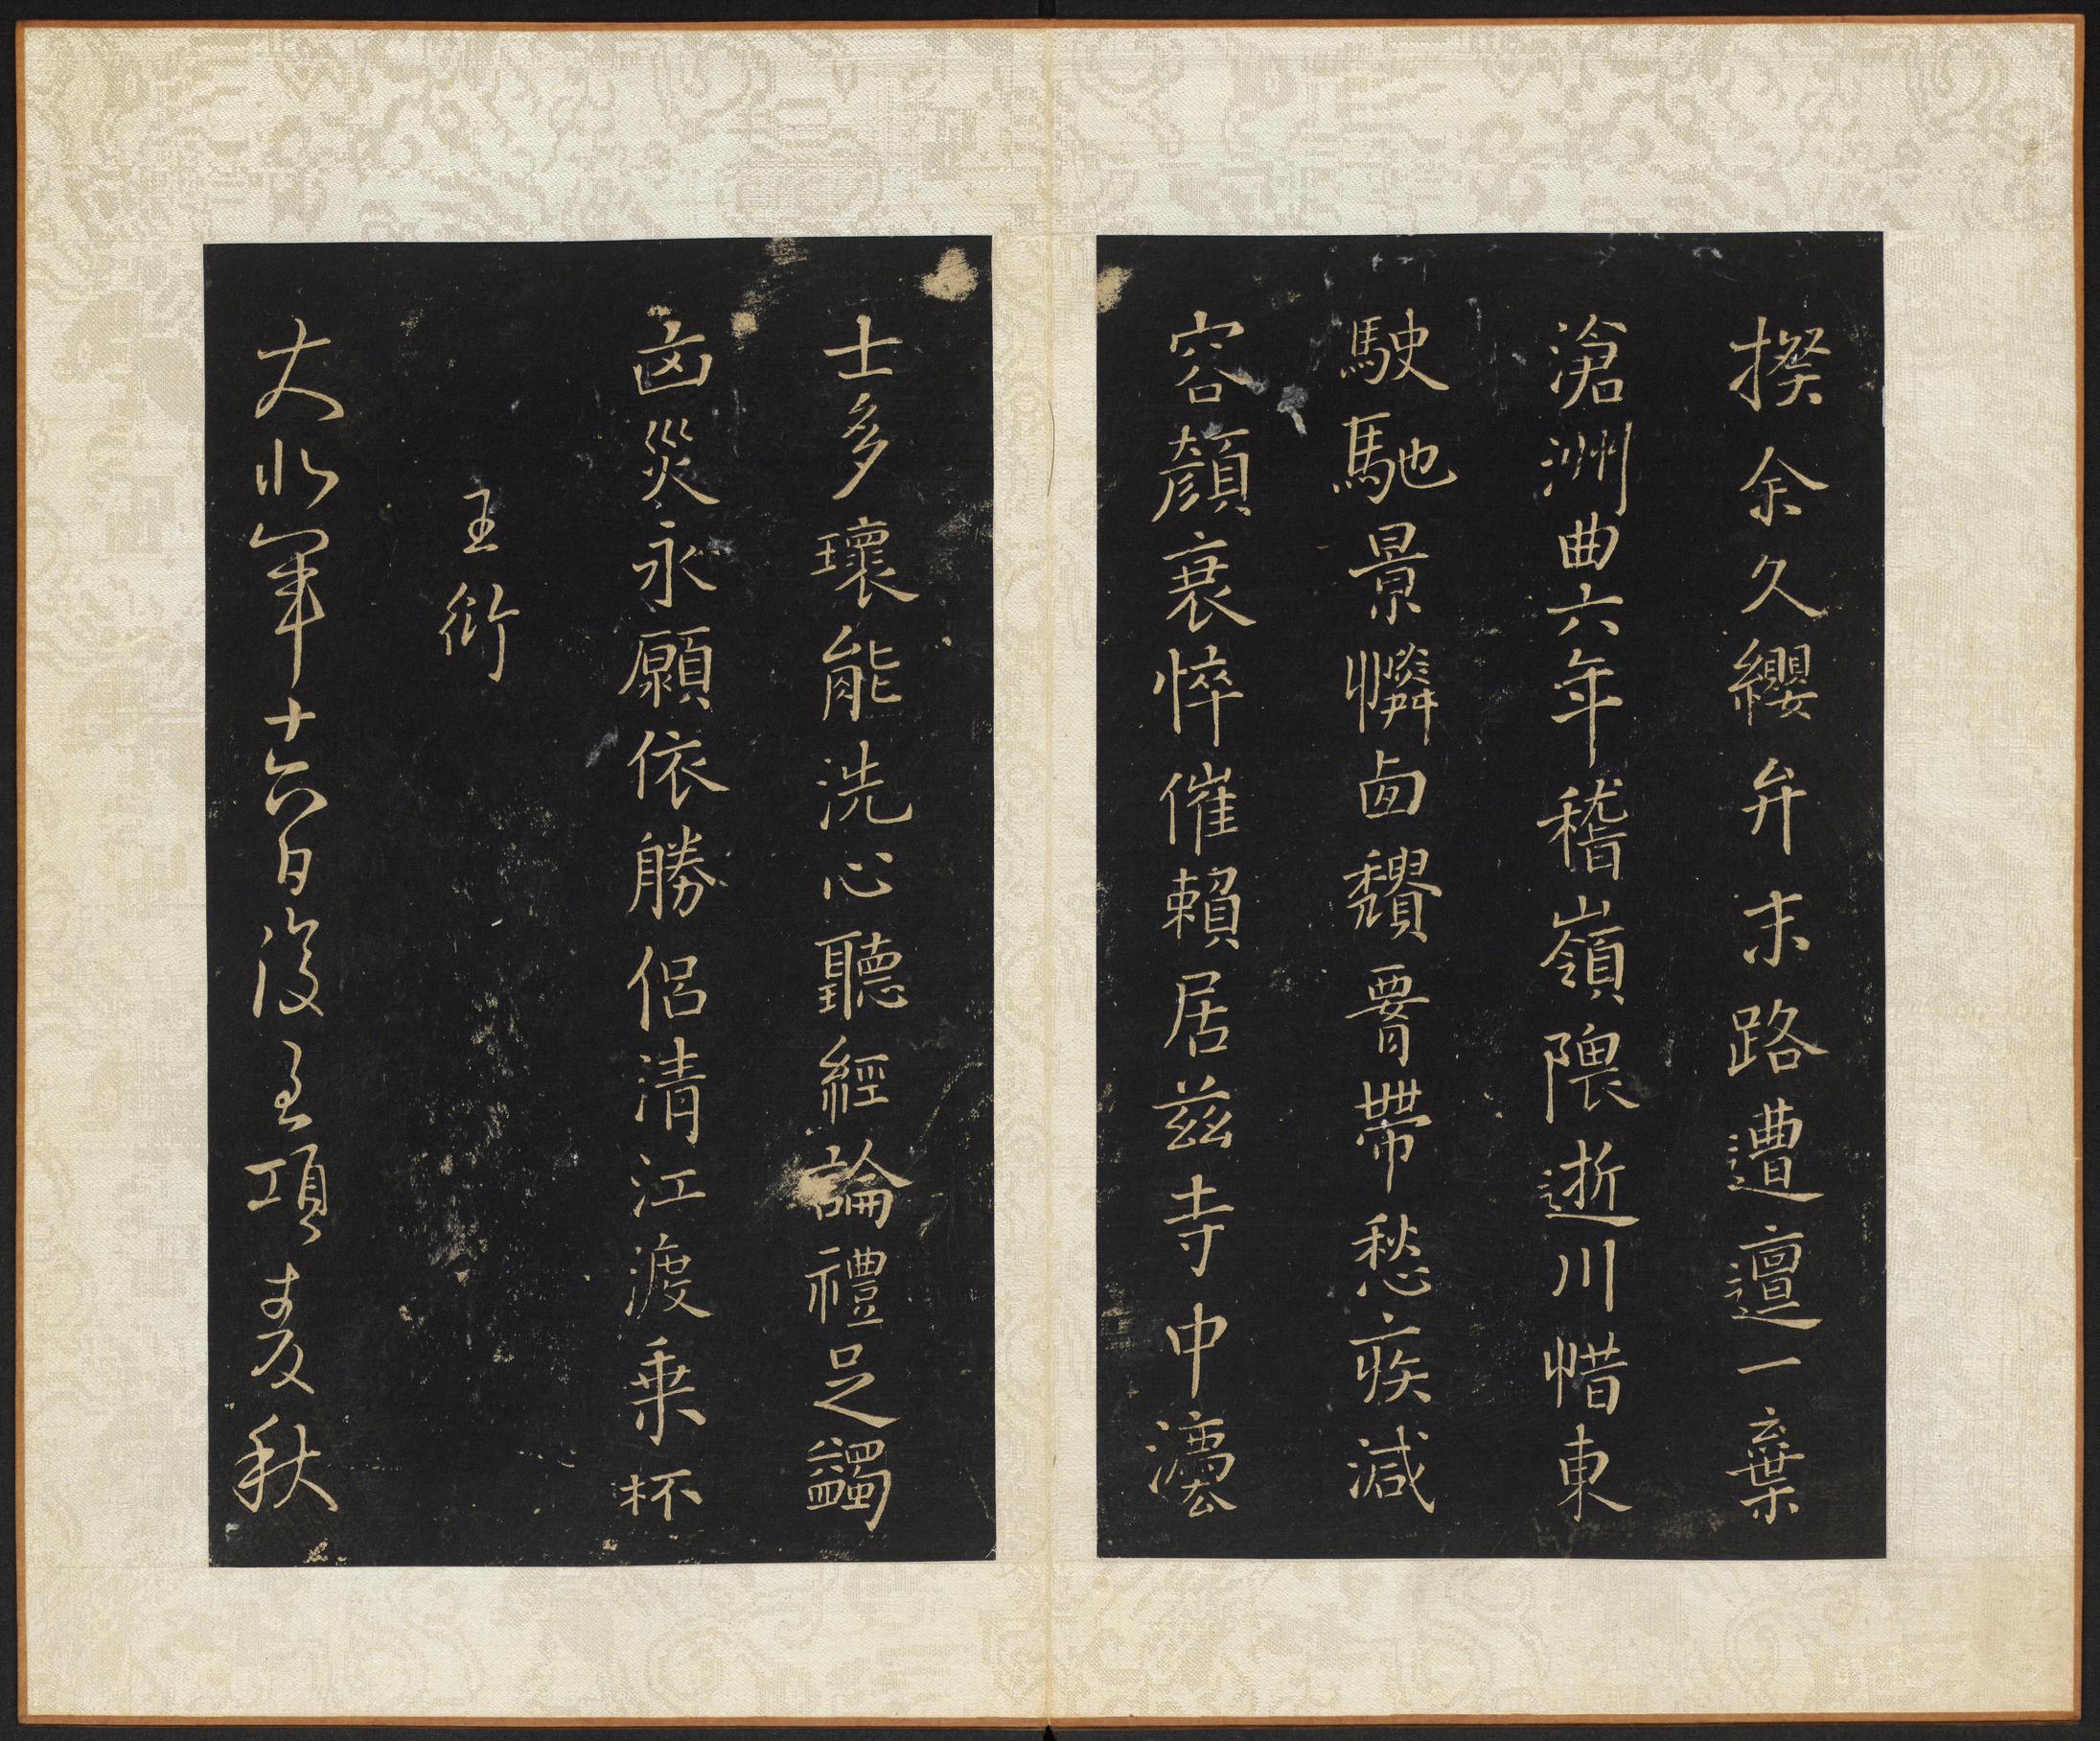 揆余久纓弁末路遭邅一棄
滄洲曲六年稽嶺隈逝川惜東
駛馳景憐西頹腰帶愁疾減
容顏衰悴催賴居兹寺中法
士多瓌能洗心聽經論禮足蠲
凶災永願依勝侶清江渡乗杯
王衍
大業年十六日復至項春秋